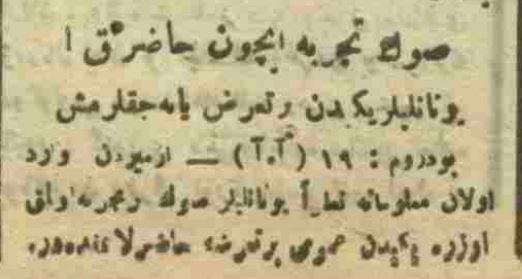 صوك تجربه ایچون حاضرلق !
یونانلیلر یكیدن بر تعرض یاپه‌جقلرمش
بودروم : ١٩ ( آ.آ ) — ازمیردن وارد
اولان معلوماته نظراً یونانلیلر صوك بر تجربه اولمق
اوزره یكیدن عمومی بر تعرضه حاضرلانمقده‌در.